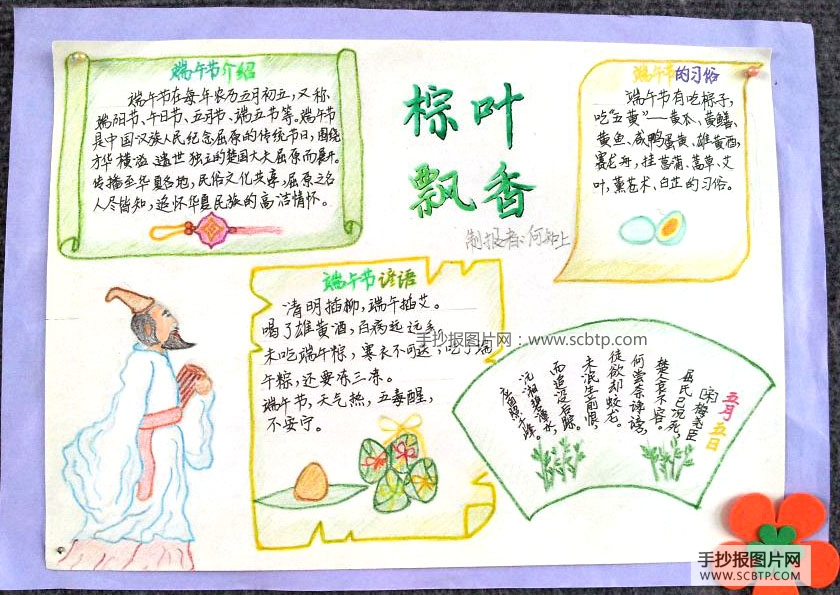 端午节介绍
端午节在每年农历五月初五,又称
端阳节、午日节、五月节、端五节等。端午节
是中国汉族人民纪念屈原的传统节日,围绕
才华横溢、遗世独立的楚国大夫屈原而展开。
传播至华夏各地,民俗文化共享,屈原之名
人尽皆知,追怀华夏民族的高洁情怀。
棕叶
飘香
制报者:何知上
端午节的习俗
端午节有吃粽子,
吃"五黄"——黄瓜、黄鳝、
黄鱼、咸鸭蛋黄、雄黄酒,
赛龙舟,挂菖蒲、蒿草、艾
叶,薰苍术、白芷的习俗。
端午节谚语
清明插柳,端午插艾。
喝了雄黄酒,百病远远丢
未吃端午粽,寒衣不可送,吃了端
午粽,还要冻三冻。
端午节,天气热,五毒醒,
不安宁。
手抄报图片网:www.scbtp.com
五月五日
[宋]梅尧臣
屈氏已沉死,
楚人哀不容。
何尝奈谗谤,
徒欲却蛟龙。
未泯生前恨,
而追没后踪。
沅湘碧潭水,
应自照千峰。
手抄报图片网
WWW.SCBTP.COM